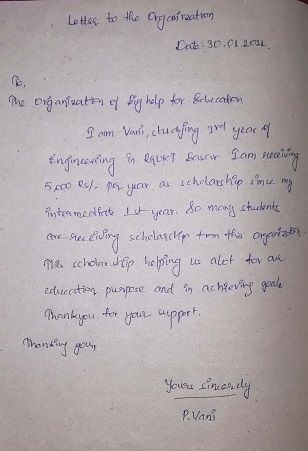 Letter to the Organization
Date: 30.01.2021.
To,
The Organization of Big help for Education
I am Vani, studying 3rd year of
Engineering in RGUKT Basar. I am receiving
5,000 Rs/- per year as scholarship since my
intermediate 1st year. So many students
are receiving scholarship from this organization.
This scholarship helping us alot for our
education purpose and in achieving goals
Thankyou for your support.
Thanking you,
Yours sincerely
P. Vani